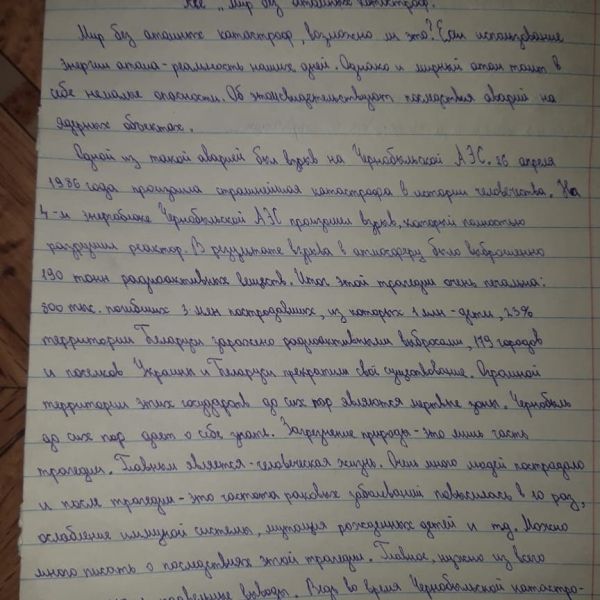 "Мир без атомных катастроф.
Мир без атомных катастроф, возможно ли это? Если использование
энергии атома - реальность наших дней. Однако и мирный атом таит в
себе немалые опасности. Об этом свидетельствуют последствия аварий на
ядерных объектах.
Одной из такой аварией был взрыв на Чернобыльской АЭС. 26 апреля
1986 года произошла страшнейшая катастрофа в истории человечества. На
4-м энергоблоке Чернобыльской АЭС произошел взрыв, который полностью
разрушил реактор. В результате взрыва в атмосферу было выброшенно
190 тонн радиоактивных веществ. Итог этой трагедии очень печальна:
800 тыс. погибших 3 млн пострадавших, из которых 1 млн - дети, 23%
территории Беларуси заражено радиоактивными выбросами, 179 городов
и поселков Украины и Беларуси прекратили своё существование. Огромной
территории этих государств до сих пор являются мертвые зоны. Чернобыль
до сих пор дает о себе знать. Загрязнение природы - это лишь часть
трагедии. Главным является - человеческая жизнь. Очень много людей пострадало
и после трагедии - это частота раковых заболеваний повысилась в 10 раз,
ослабление иммуной системы, мутация рожденных детей и т.д. Можно
много писать о последствиях этой трагедии. Главное, нужно из всего
правильные выводы. Ведь во время Чернобыльской катастро-